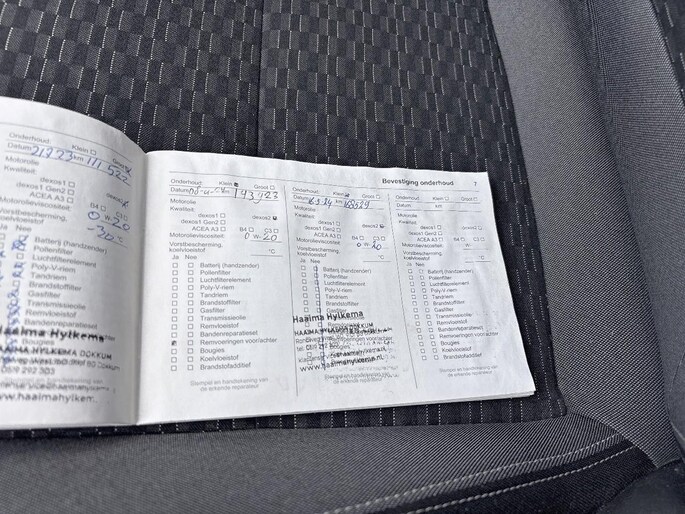 Onderhoud: Klein Groot
Datum 21723 km 111 522
Motorolie:
Kwaliteit:
dexos1
dexos1 Gen2
ACEA A3
0 W-20
Vorstbescherming,
koelvloeistof -30 °C
Ja Nee
Batterij (handzender)
Pollenfilter
Luchtfilterelement
Poly-V-riem
Tandriem
Brandstoffilter
Gasfilter
Transmissieolie
Remvloeistof
Bandenreparatieset
Haaima Hylkema
HAAIMA HYLKEMA DOKKUM
0519 292 303
www.haaimahylkem
Bevestiging onderhoud 7
Onderhoud: Klein Groot
Datum km 143923
Motorolie:
Kwaliteit:
dexos1 dexos2
dexos1 Gen2
ACEA A3 B4 C3
Motorolieviscositeit: 0 W-20
Vorstbescherming,
koelvloeistof °C
Ja Nee
Batterij (handzender)
Pollenfilter
Luchtfilterelement
Poly-V-riem
Tandriem
Brandstoffilter
Gasfilter
Transmissieolie
Remvloeistof
Bandenreparatieset
Remvoeringen voor/achter
Bougies
Koelvloeistof
Brandstofadditief
Stempel en handtekening van
de erkende reparateur
Onderhoud: Klein Groot
Datum km
Motorolie:
Kwaliteit:
dexos1 dexos2
dexos1 Gen2
ACEA A3 B4 C3
Motorolieviscositeit: 0 W-20
Vorstbescherming,
koelvloeistof °C
Ja Nee
Batterij (handzender)
Pollenfilter
Luchtfilterelement
Poly-V-riem
Tandriem
Brandstoffilter
Gasfilter
Transmissieolie
Haaima Hylkema
www.haaimahylkema.nl
Stempel en handtekening van
de erkende reparateur
Onderhoud: Klein Groot
Datum km
Motorolie:
Kwaliteit:
dexos1 dexos2
dexos1 Gen2
ACEA A3 B4 C3
Motorolieviscositeit: W-
Vorstbescherming,
koelvloeistof °C
Ja Nee
Batterij (handzender)
Pollenfilter
Luchtfilterelement
Poly-V-riem
Tandriem
Brandstoffilter
Gasfilter
Transmissieolie
Remvloeistof
Bandenreparatieset
Remvoeringen voor/achter
Bougies
Koelvloeistof
Brandstofadditief
Stempel en handtekening van
de erkende reparateur